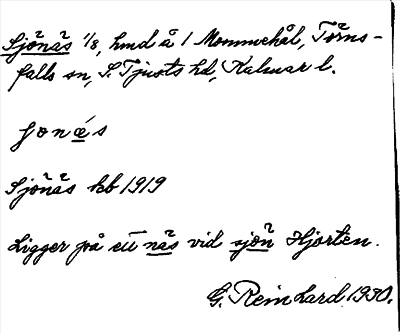 Sjönäs 1/8, hmd å 1 Mommehål, Törns-
falls sn, S. Tjusts hd, Kalmar l.
ʃonæs
Sjönäs kb 1919
Ligger på ett näs vid sjön Hjorten.
G. Reinhard 1930.